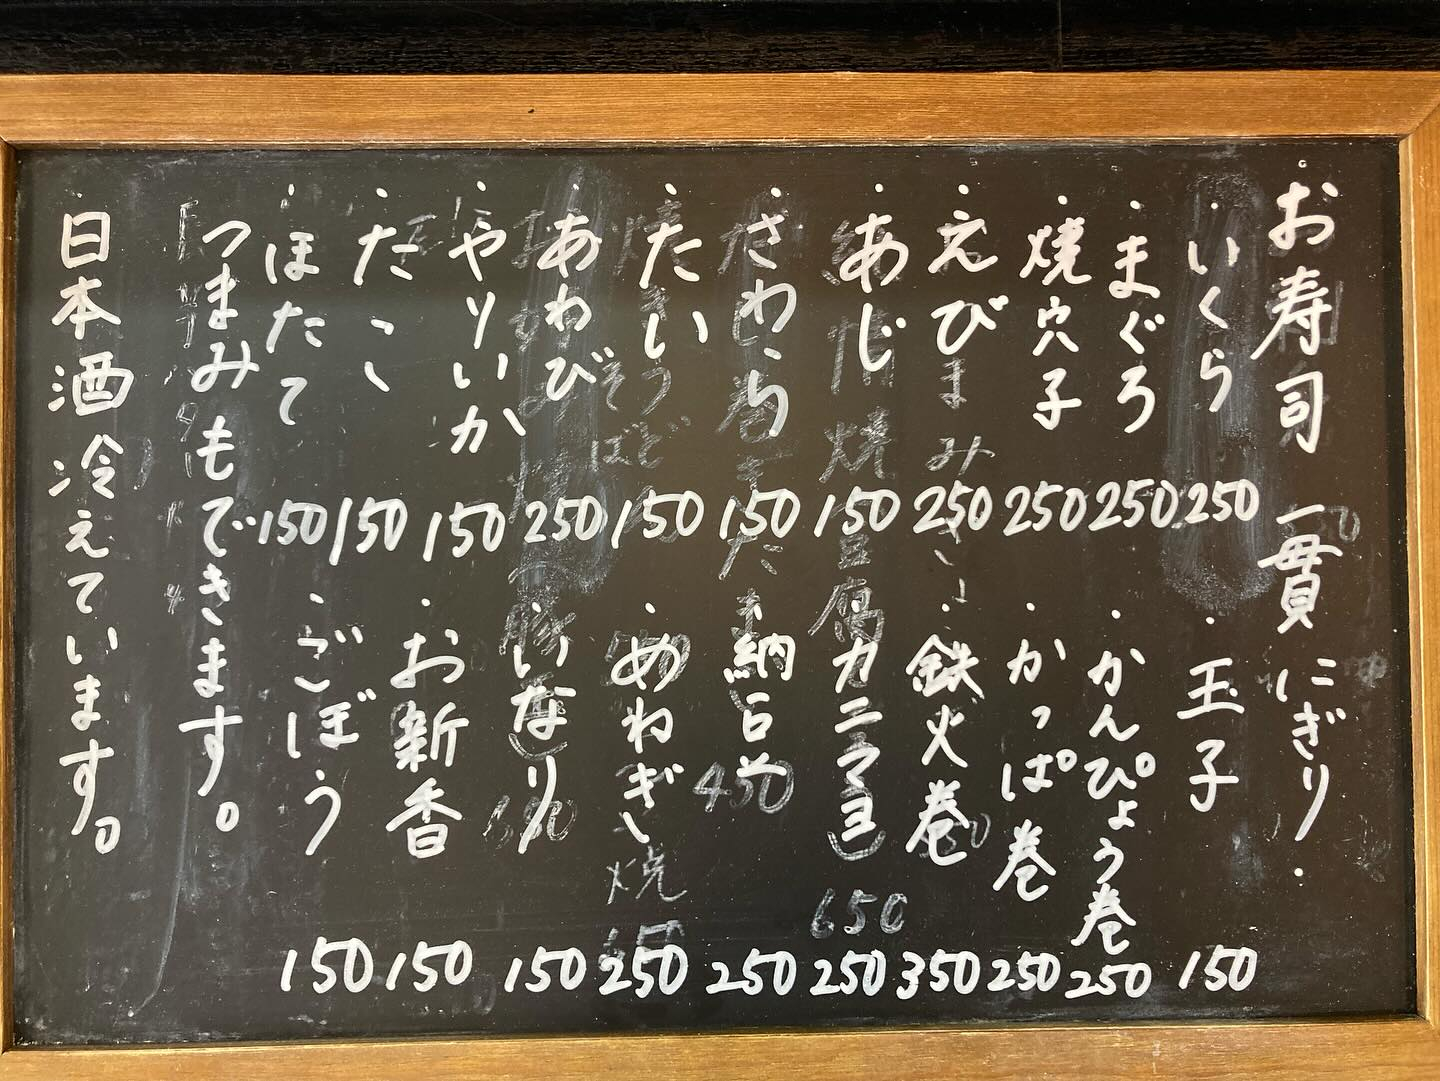 お寿司 一貫 にぎり.
・いくら 250
・まぐろ 250
・焼穴子 250
・えび 250
・あじ 150
・さわら 150
・たい 150
・あわび 250
・やりいか 150
・たこ 150
・ほたて 150
・玉子 150
・かんぴょう巻 250
・かっぱ巻 250
・鉄火巻 350
カニマヨ 250
・納豆 250
・めねぎ 250
・いなり 150
・お新香 150
・ごぼう 150
つまみもできます。
日本酒冷えています。